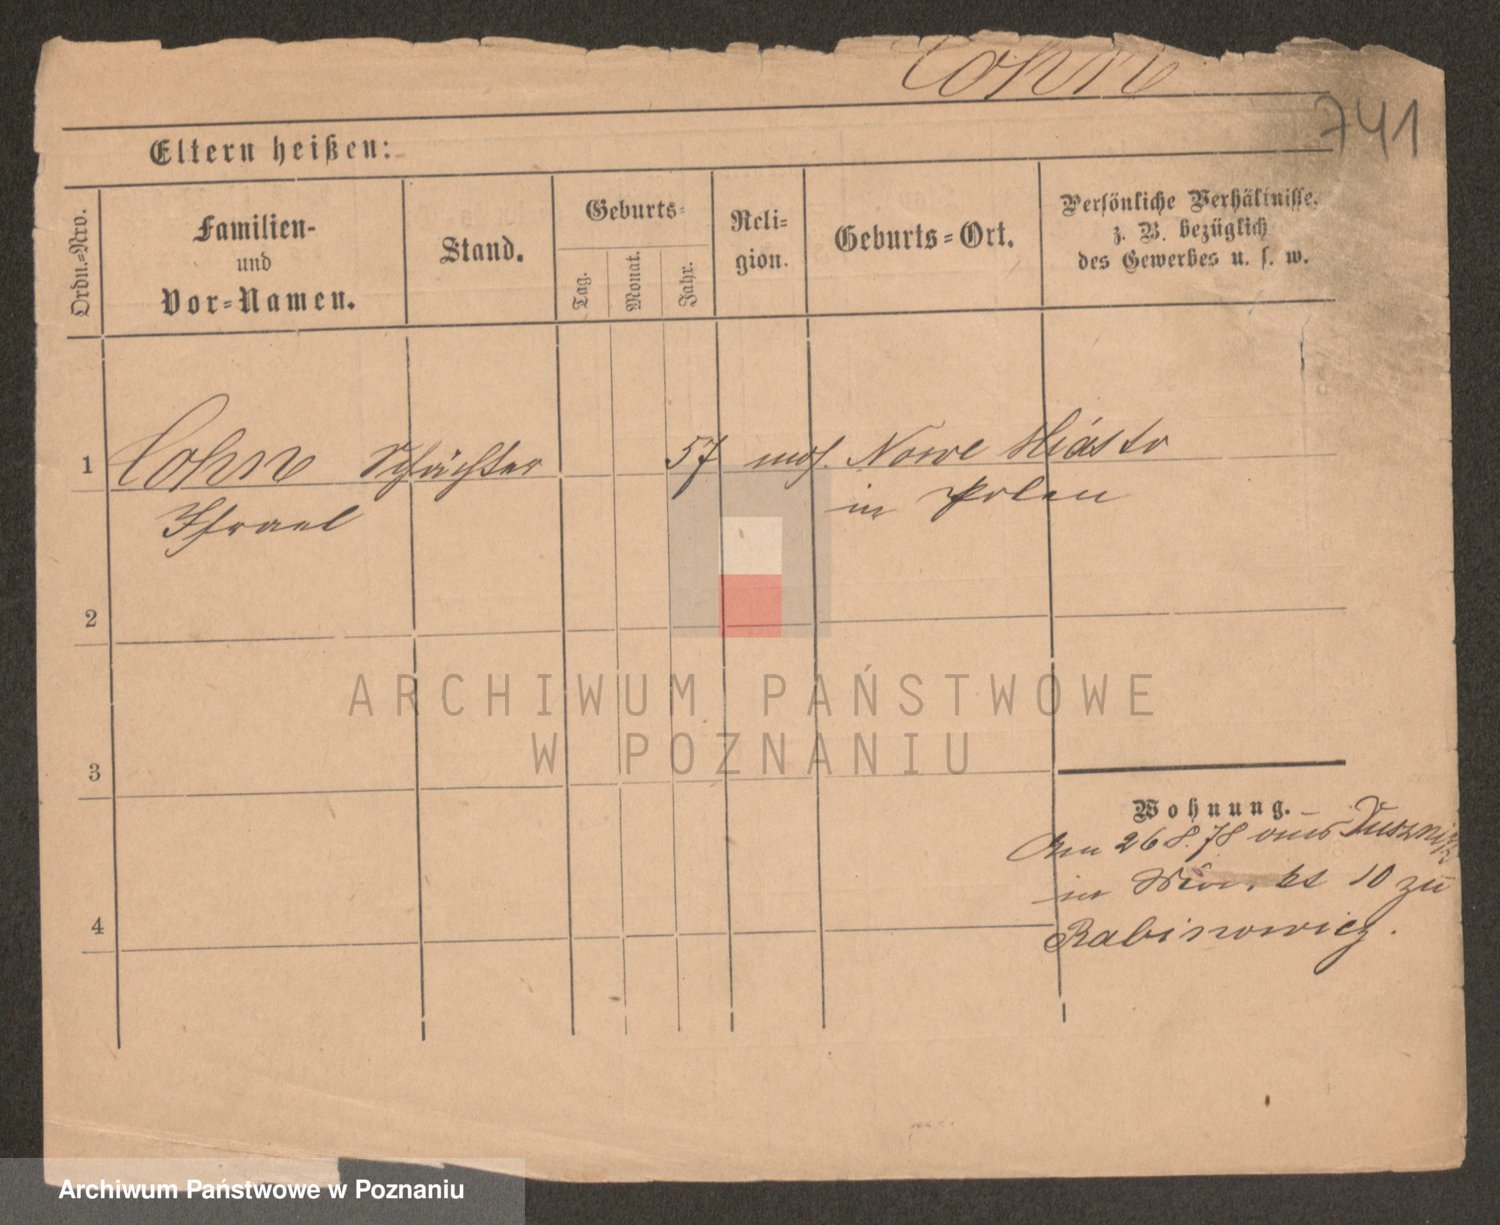 Cohn
741
Eltern heißen:
Ordn.=Nro.
Familien-
und
Vor=Namen.
Stand.
Geburts=
Tag.
Monat.
Jahr.
Reli=
gion.
Geburts=Ort.
Persönliche Verhältnisse,
z. B. bezüglich
des Gewerbes u. s. w.
1 Cohn Schächter 57 mos. Nowe Miasto
Israel in Polen
2
ARCHIWUM PAŃSTWOWE
W POZNANIU
3
Wohnung.
26 8. 78 aus Dusznik
in 10 zu
4 Rabinowicz.
Archiwum Państwowe w Poznaniu